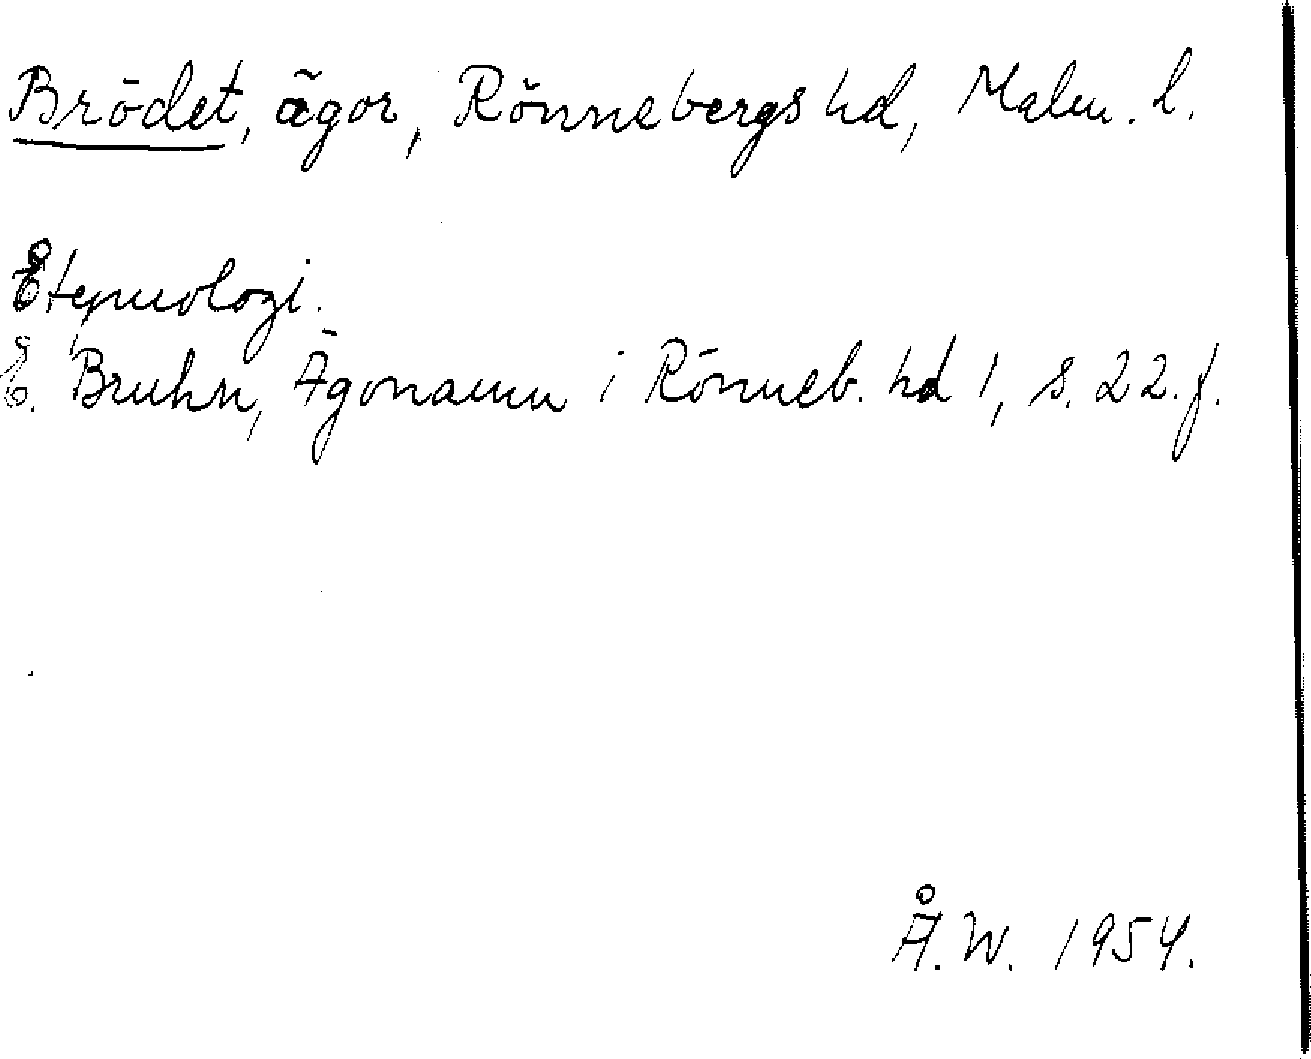 Brödet, ägor, Rönnebergs hd, Malm. l.
Etymologi.
E. Bruhn, Ägonamn i Rönneb. hd 1, s. 22.f.
Å.W. 1954.